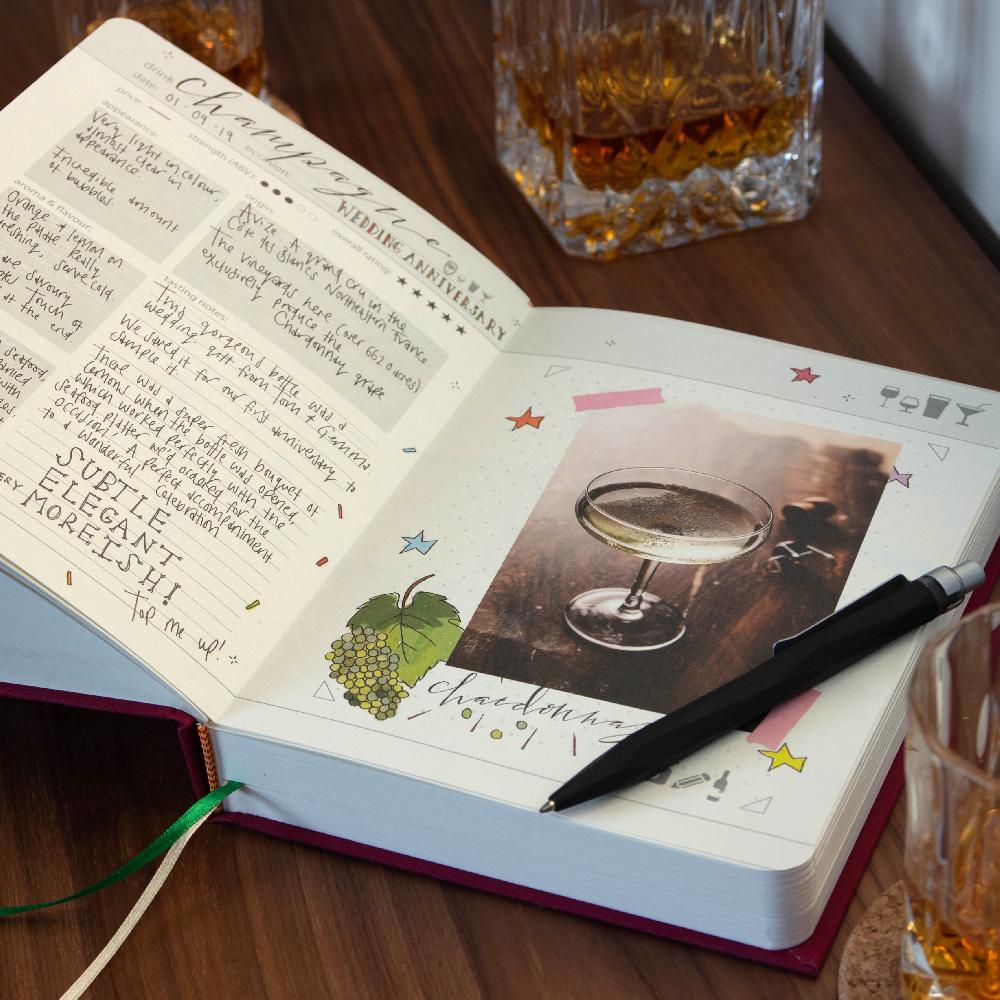 drink: Champagne
date: 01 - 09 - 19
price:
strength (ABV):
occasion: WEDDING ANNIVERSARY
overall rating:
appearance:
Very light in colour,
almost clear in
appearance.
Incredible amount
of bubbles.
origin:
Avize. A grand cru in the
Côte des Blancs Northeastern France.
The vineyards here cover 662.0 acres)
exclusively produce the
Chardonnay grape
aroma & flavour:
Orange & lemon on
the palate Really
refreshing. Serve cold.
savoury
touch of
at the end
seafood
with
tasting notes:
This gorgeous bottle was a
wedding gift from Tom & Gemma
We saved it for our first anniversary to
sample it.
There was a super fresh bouquet of
lemons when the bottle was opened,
which worked perfectly with the
seafood platter we'd ordered for the
occasion. A perfect accompaniment
to a wonderful celebration
SUBTLE
ELEGANT
VERY MOREISH!
Top me up!
chardonnay